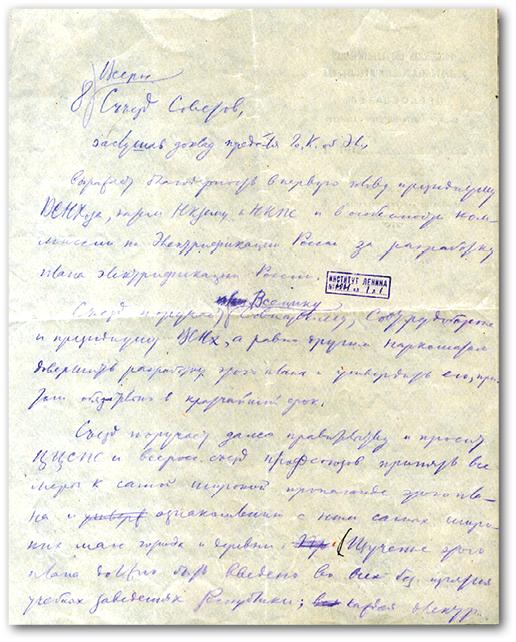 8) Всерос
Съезд Советов,
заслушав доклад предс-ля Г. К. об Эл.,
выражает благодарность в первую очередь президиуму
ВСНХоза, также НКзему и НКПС и в особенности ко-
миссии по Электрификации России за разработку
плана электрификации России.
ИНСТИТУТ ЛЕНИНА
Всецику
Съезд поручает Совнаркому, Совтрудобороне
и президиуму ВСНХ, а равно другим наркоматам
довершить разработку этого плана и утвердить его, при-
том обязательно в кратчайший срок.
Съезд поручает далее правительству и просит
ВЦСПС и всеросс. съезд профсоюзов принять все
меры к самой широкой пропаганде этого пла-
на и ознакомлению с ним самых широ-
ких масс города и деревни. Изучение этого
плана должно быть введено во всех без изъятия
учебных заведениях республики; каждая электри-